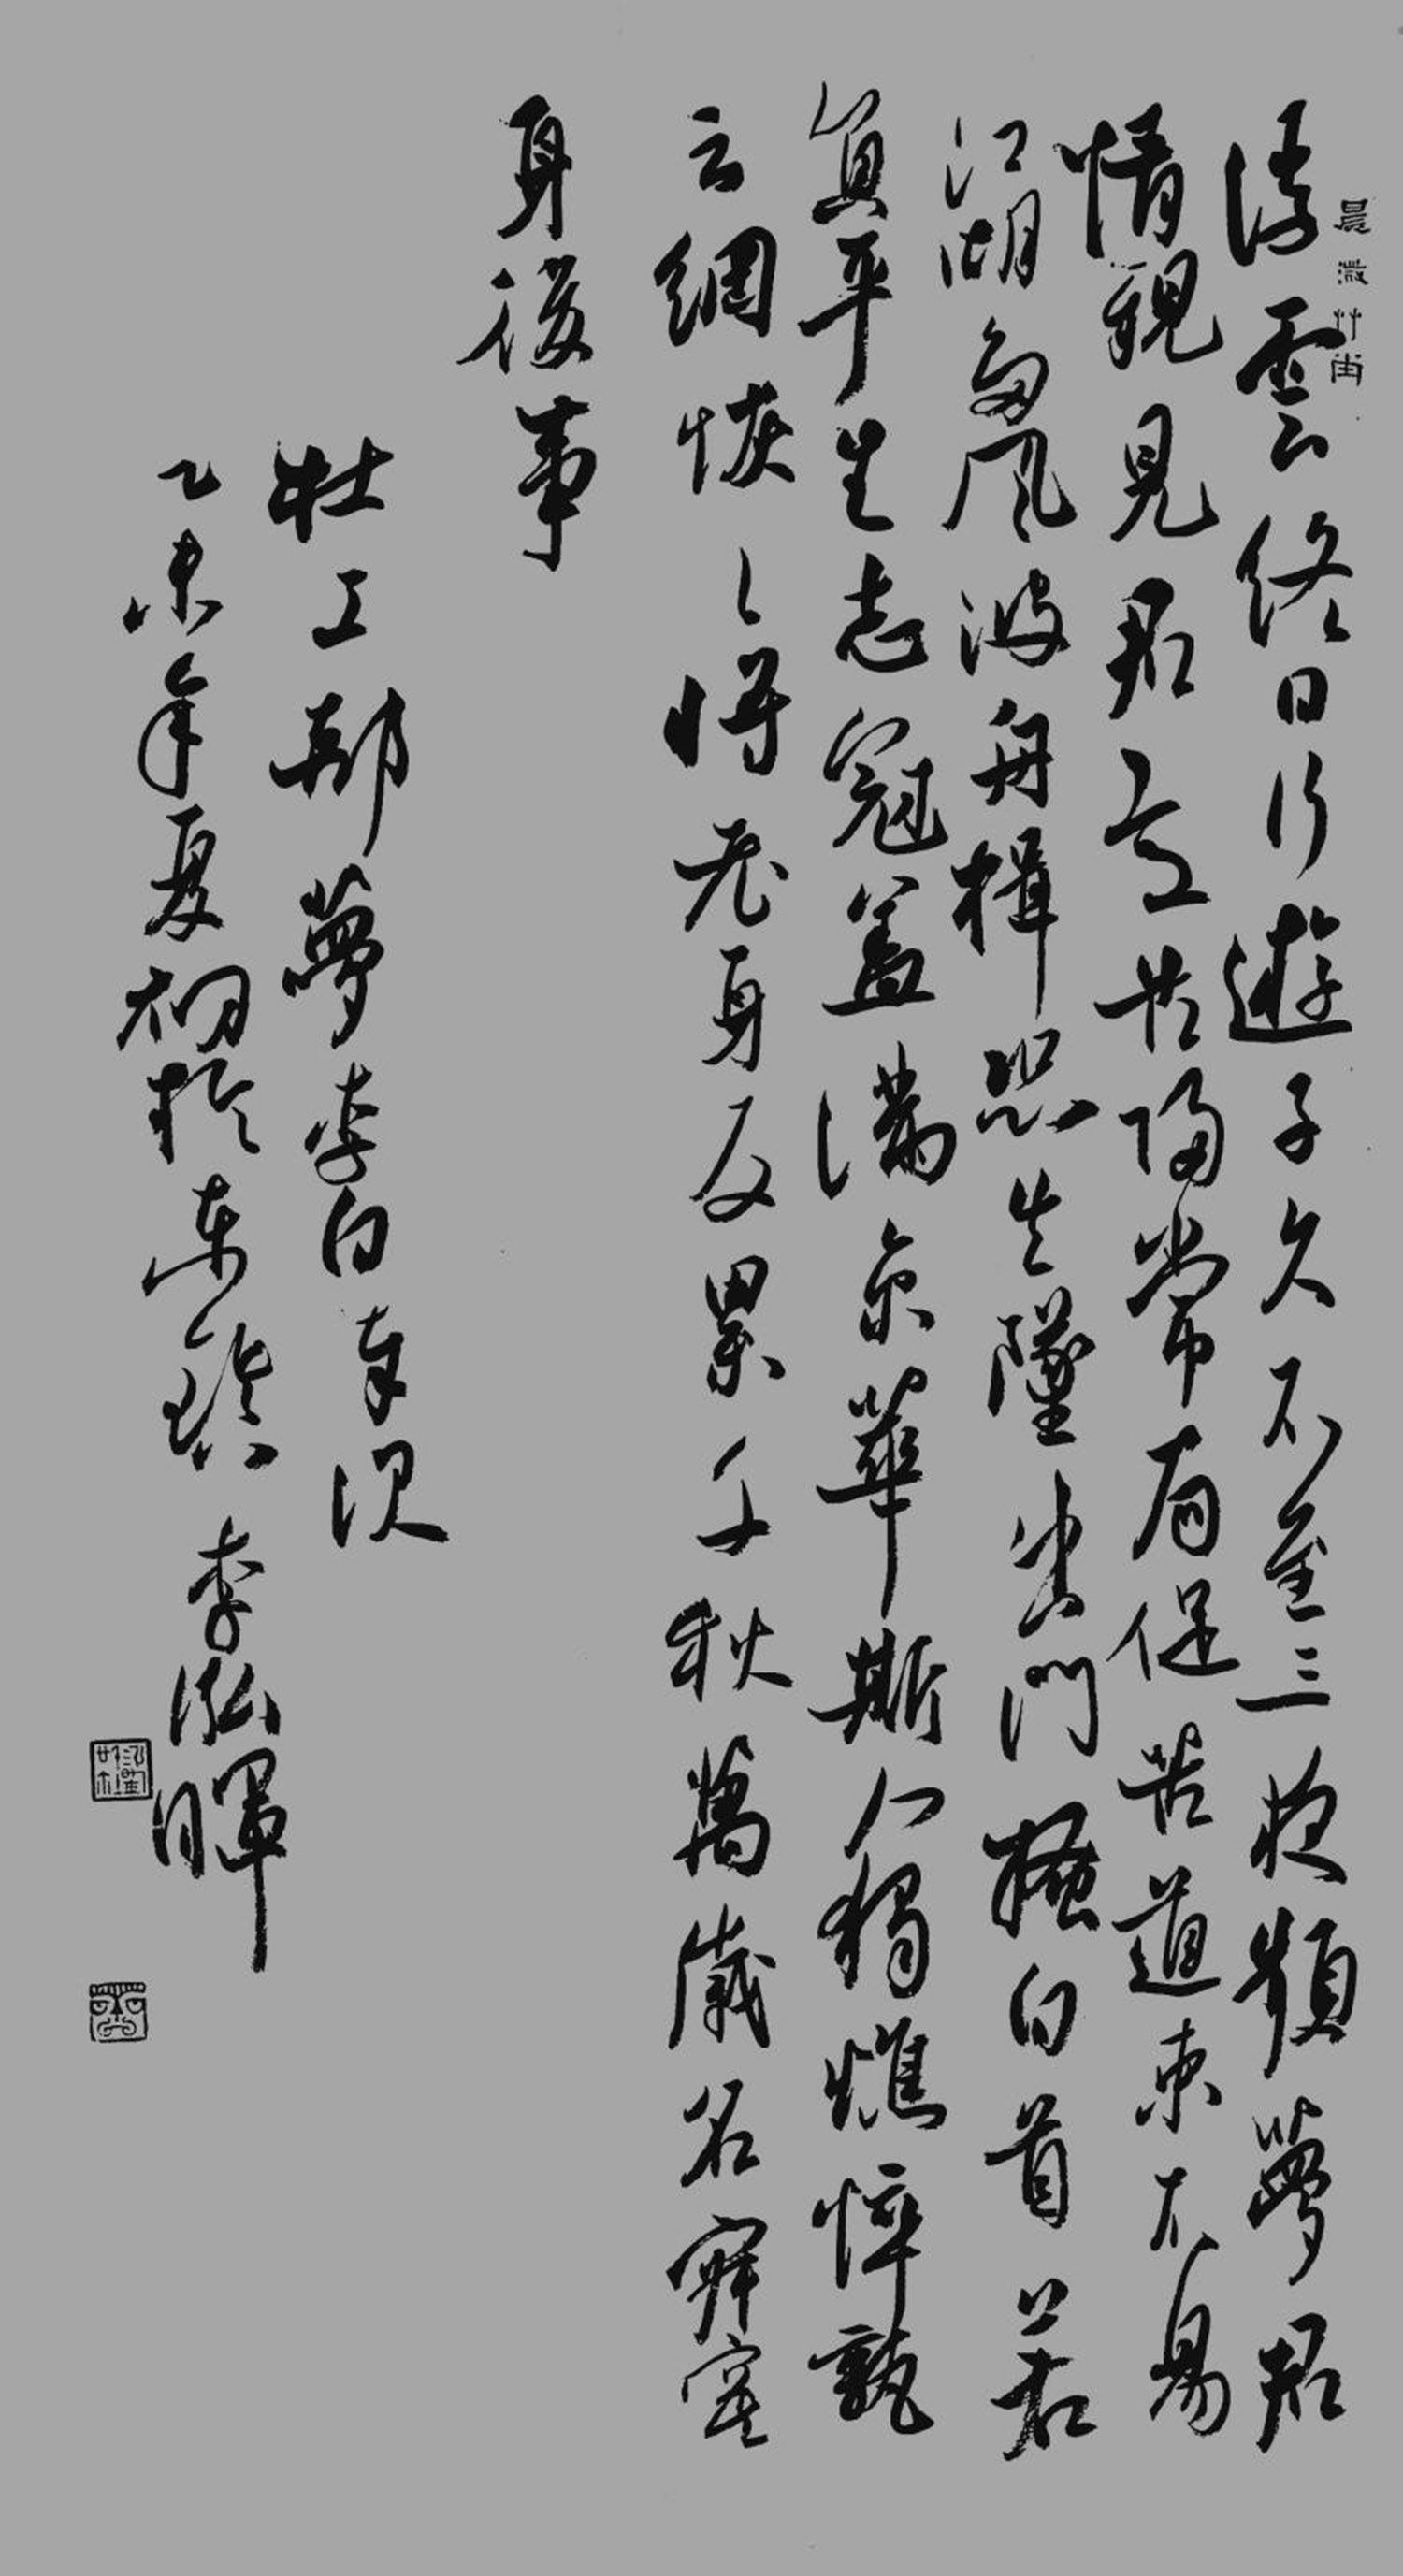 浮雲終日行遊子久不至三夜頻夢君
情親見君意告歸常局促苦道來不易
江湖多風波舟楫恐失墜出門搔白首若
負平生志冠蓋滿京華斯人獨憔悴孰
云網恢〻將老身反累千秋萬歲名寂寞
身後事
杜工部夢李白
乙未年夏初於東 李泓暉